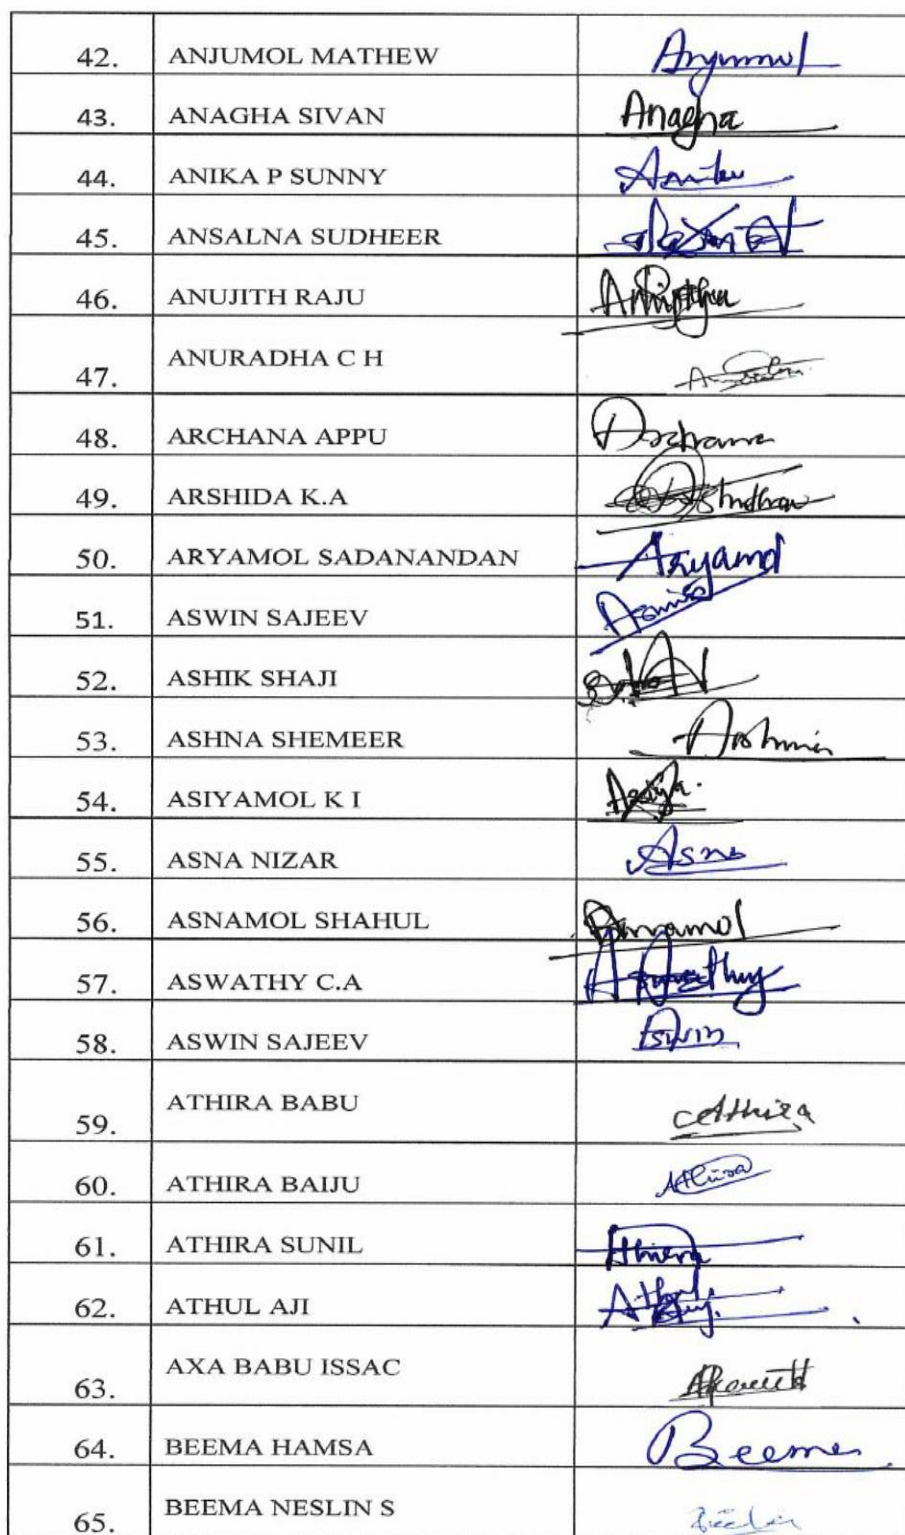 42. ANJUMOL MATHEW Anjumol
43. ANAGHA SIVAN Anagha
44. ANIKA P SUNNY
45. ANSALNA SUDHEER
46. ANUJITH RAJU
47. ANURADHA C H
48. ARCHANA APPU Archana
49. ARSHIDA K.A
50. ARYAMOL SADANANDAN Aryamol
51. ASWIN SAJEEV
52. ASHIK SHAJI
53. ASHNA SHEMEER
54. ASIYAMOL K I Asiya.
55. ASNA NIZAR Asna
56. ASNAMOL SHAHUL
57. ASWATHY C.A Aswathy
58. ASWIN SAJEEV Aswin
59. ATHIRA BABU Athira
60. ATHIRA BAIJU Athira
61. ATHIRA SUNIL Athira
62. ATHUL AJI
63. AXA BABU ISSAC
64. BEEMA HAMSA Beema
65. BEEMA NESLIN S